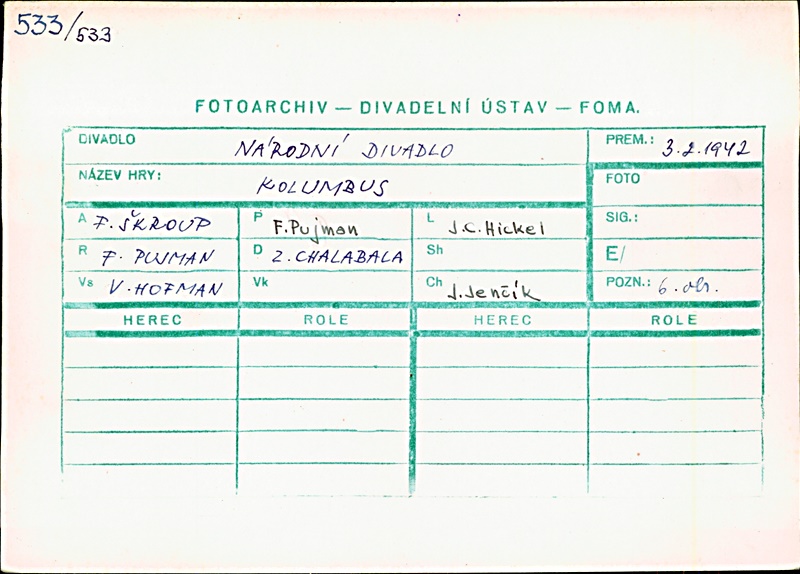 533/533
FOTOARCHIV — DIVADELNÍ ÚSTAV — FOMA.
DIVADLO NÁRODNÍ DIVADLO PREM.: 3.2.1942
NÁZEV HRY: KOLUMBUS FOTO
A F. ŠKROUP P F. Pujman L J.C. Hickel SIG.:
R F. PUJMAN D Z. CHALABALA Sh E/
Vs V. HOFMAN Vk Ch J. Jenčík POZN.: 6. obr.
HEREC ROLE HEREC ROLE